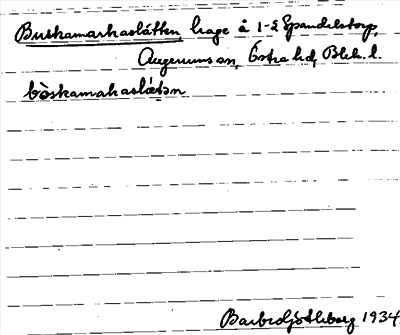 Buskamarkaslätten hage å 1-2 Spandelstorp,
Augerums sn, Östra hd, Blek. l.
bòskamakaslǽtən
Barbro Göthberg 1934